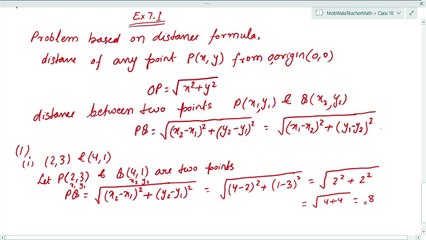 MobiWalaTeacherMath > Class 10
Ex 7.1
Problem based on distance formula,
distance of any point P(x,y) from origin (0,0)
OP = √x²+y²
distance between two points P(x₁,y₁) & Q(x₂,y₂)
PQ = √(x₂-x₁)²+(y₂-y₁)² = √(x₁-x₂)²+(y₁-y₂)²
(1)
(i) (2,3) & (4,1)
Let P(2,3) & Q(4,1) are two points
x₁ y₁ x₂ y₂
PQ = √(x₂-x₁)²+(y₂-y₁)² = √(4-2)²+(1-3)² = √2²+2²
= √4+4 = .8